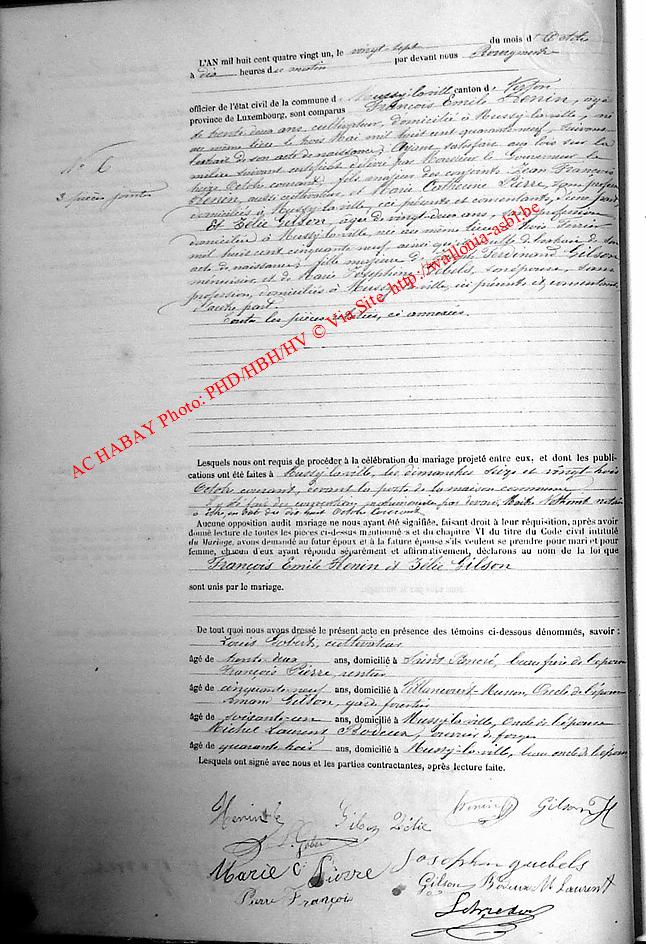 L'AN mil huit cent quatre vingt un, le vingt sept du mois d'Octobre
à dix heures du matin par devant nous Bourgmestre
officier de l'état civil de la commune d Mussy-la-ville canton de Virton
province de Luxembourg, sont comparus François Emile Henin, agé
de trente deux ans, cultivateur, domicilié à Mussy-la-ville, né
au même lieu le trois Mai mil huit cent quarante neuf, suivant
l'extrait de son acte de naissance; Ayant satisfait aux lois sur la
milice suivant certificat délivré par Monsieur le Gouverneur le
treize Octobre courant; fils majeur des conjoints Jean François
Henin, aussi cultivateur et Marie Catherine Pierre, sans profession
domiciliés à Mussy-la-ville, ici présents et consentants, d'une part
Et Zélie Gilson, âgée de vingt-deux ans, profession
domiciliée à Mussy-la-ville née au même lieu le trois
mil huit cent cinquante neuf ainsi de l'extrait de son
acte de naissance; fille majeure d Ferdinand Gilson
menuisier et de Marie Joséphine, son épouse, sans
profession, domiciliés à Mussy-la-ville, ici présents et consentants
d'autre part.
Toutes les pièces, ci annexées.
N° 6
3 pièces jointes
AC HABAY Photo: PHD/HBH/HV © Via Site http://wallonia-asbl.be
Lesquels nous ont requis de procéder à la célébration du mariage projeté entre eux, et dont les publi-
cations ont été faites à Mussy-la-ville, les dimanches seize et vingt trois
Octobre courant, devant la porte de la maison commune
Il a été fait des conventions matrimoniales par devant Maître notaire
à le dix huit Octobre courant
Aucune opposition audit mariage ne nous ayant été signifiée, faisant droit à leur réquisition, après avoir
donné lecture de toutes les pièces ci-dessus mentionnées et du chapitre VI du titre du Code civil intitulé
du Mariage, avons demandé au futur époux et à la future épouse s'ils veulent se prendre pour mari et pour
femme, chacun d'eux ayant répondu séparément et affirmativement, déclarons au nom de la loi que
François Emile Henin et Zélie Gilson
sont unis par le mariage.
De tout quoi nous avons dressé le présent acte en présence des témoins ci-dessous dénommés, savoir :
Louis Gobert, cultivateur
âgé de trente deux ans, domicilié à Saint, beau frère de l'époux
François Pierre, rentier
âgé de cinquante neuf ans, domicilié à Villancourt-Musson, Oncle de l'époux
Gilson, garde forestier
âgé de soixante-un ans, domicilié à Mussy-la-ville, Oncle de l'épouse
Michel Laurent Bodeux, ouvrier de forge
âgé de quarante trois ans, domicilié à Mussy-la-ville, beau oncle de l'épouse
Lesquels ont signé avec nous et les parties contractantes, après lecture faite.
Henin E Gilson Zélie Henin Gilson
L. Gobert
Marie C Pierre Josephine guebels
Pierre François Gilson Bodeux M Laurent